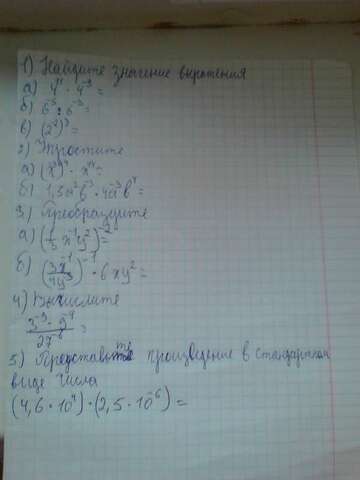 1) Найдите значение выражения
а) 4¹¹ · 4⁻⁹ =
б) 6⁻⁵ : 6⁻³ =
в) (2⁻²)³ =
2) Упростите
а) (x⁻³)⁴ · x¹⁴ =
б) 1,5a²b⁻³ · 4a⁻³b⁴ =
3) Преобразуйте
а) (1/3 x⁻¹y²)⁻² =
б) (3x⁻¹/4y⁻³)⁻¹ · 6xy² =
4) Вычислите
3⁻⁹ · 9⁻⁴/27⁻⁶ =
5) Представьте произведение в стандартном
виде числа
(4,6 · 10⁴) · (2,5 · 10⁻⁶) =